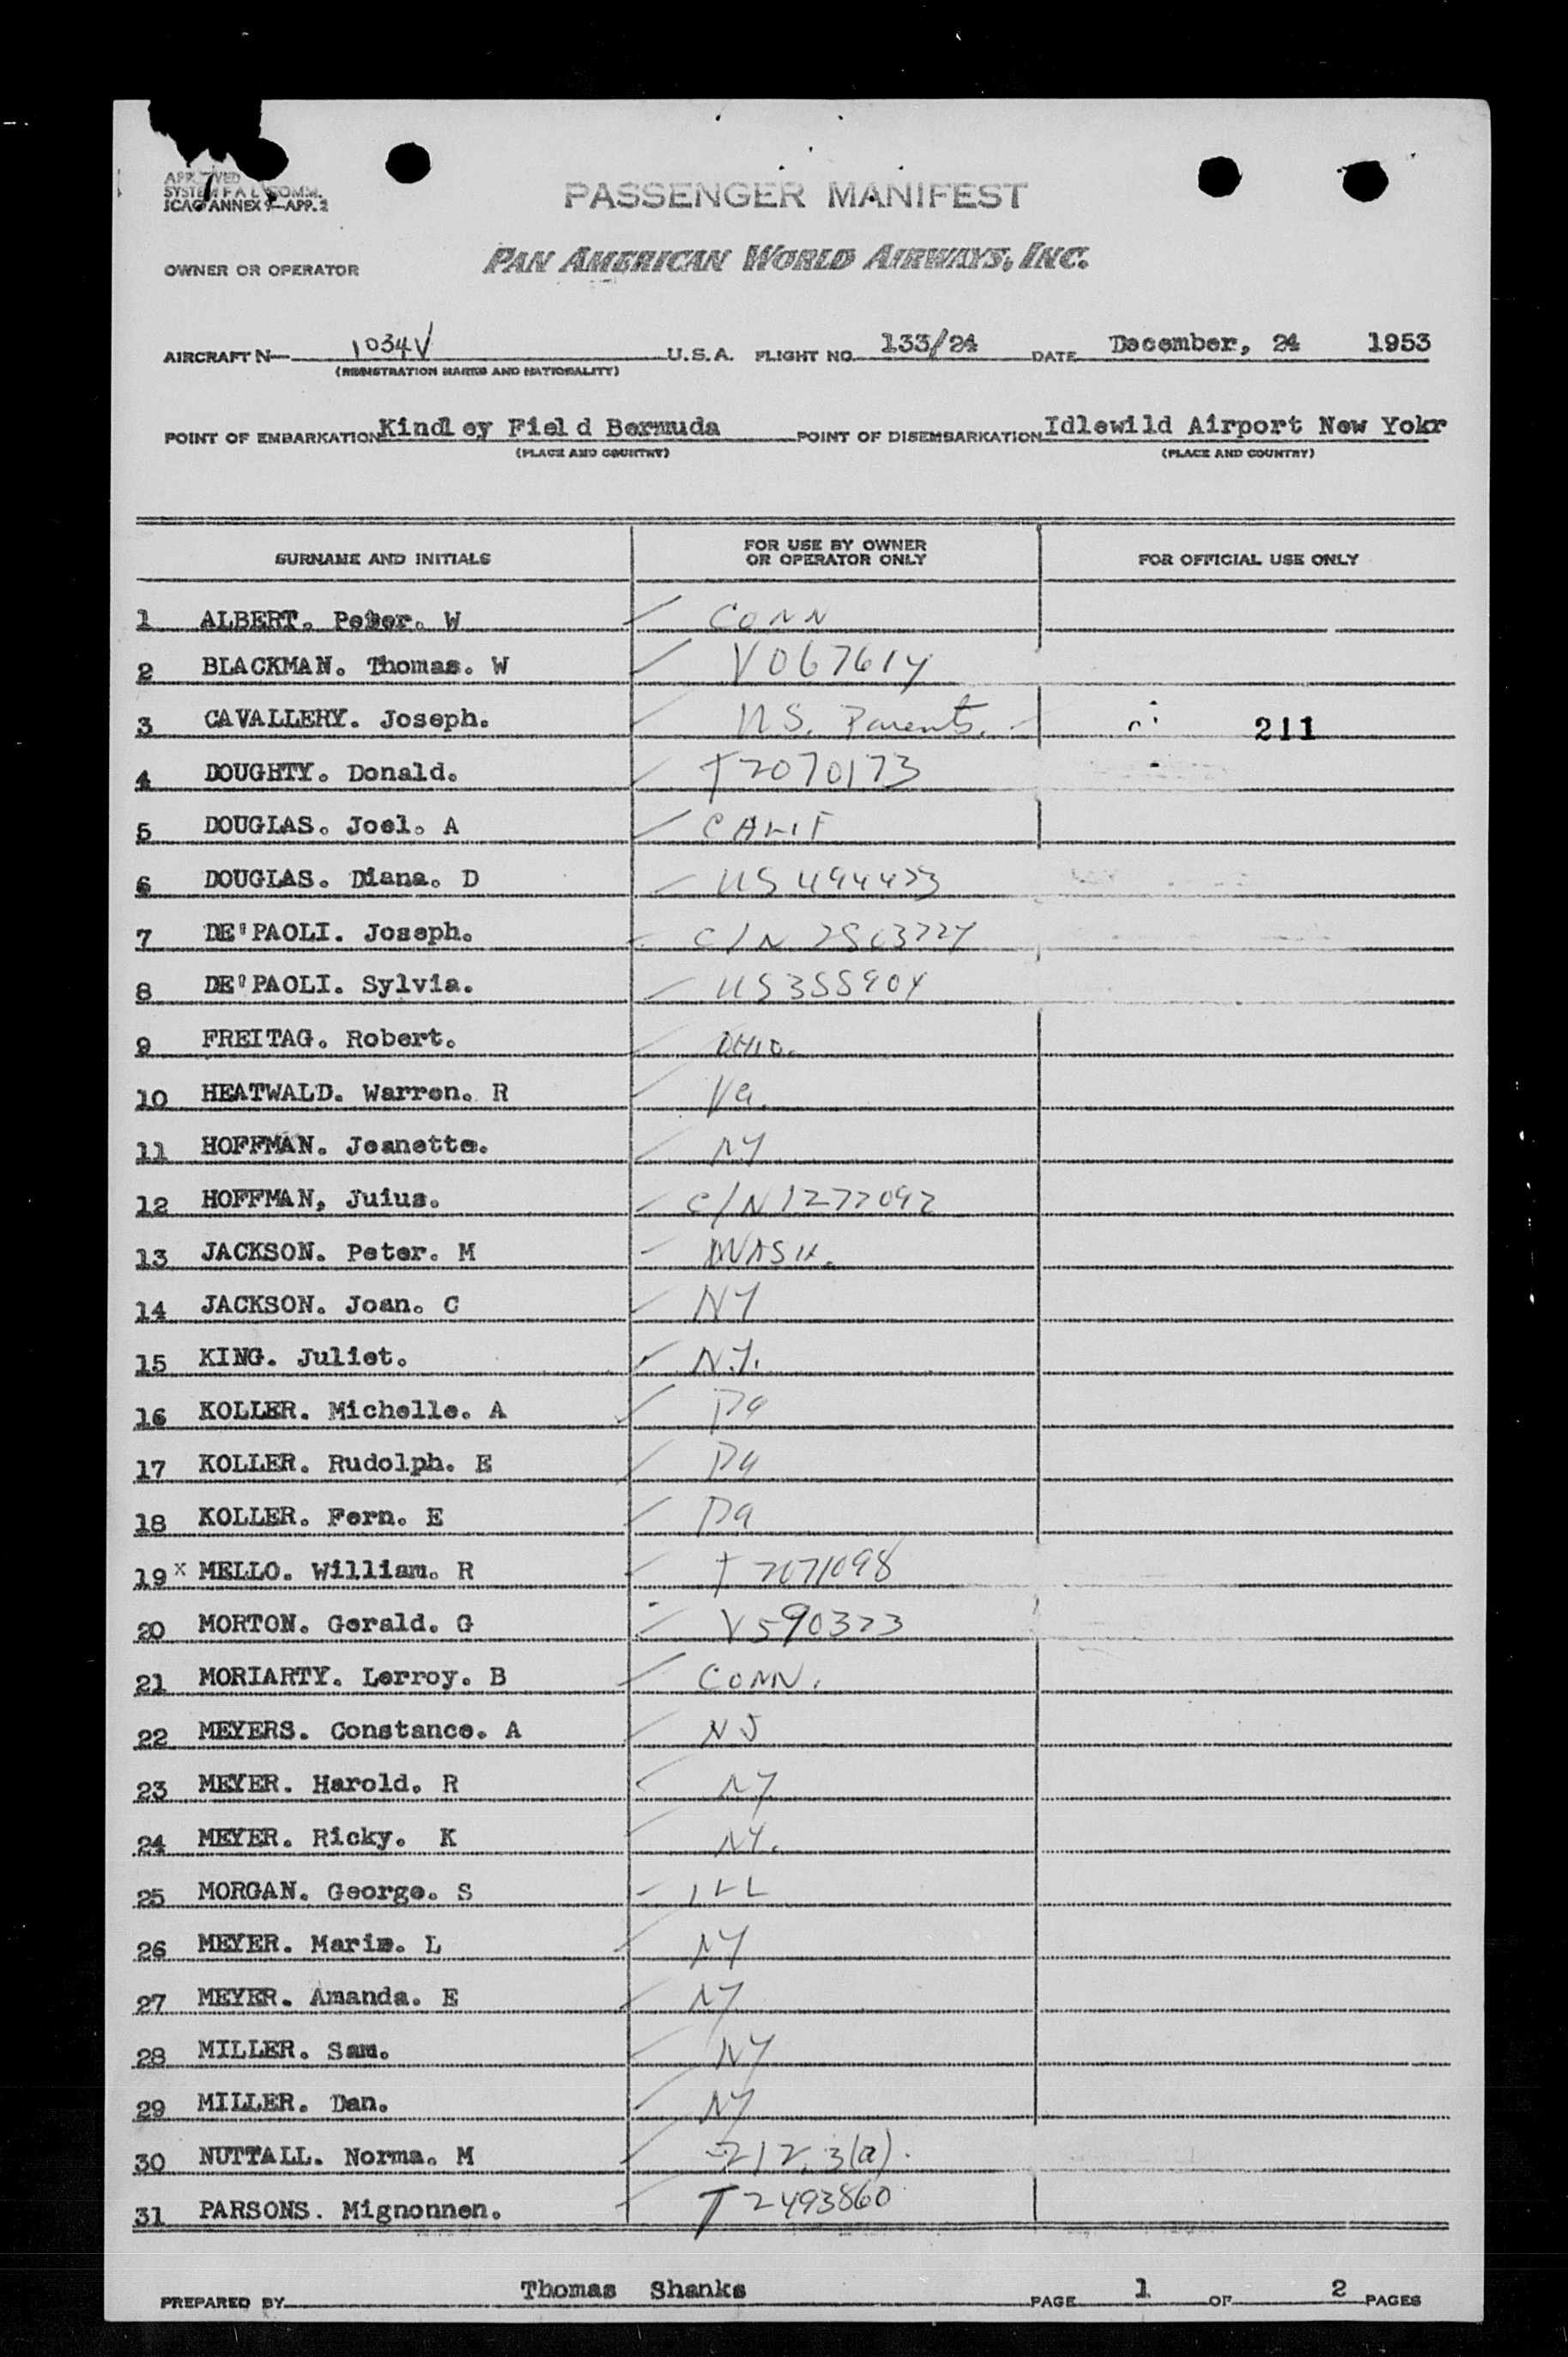 APPROVED
SYSTEM F A L COMM.
ICAO ANNEX 9—APP. 2
PASSENGER MANIFEST
OWNER OR OPERATOR PAN AMERICAN WORLD AIRWAYS, INC.
AIRCRAFT N— 1034V U.S.A. FLIGHT NO. 133/24 DATE December, 24 1953
(REGISTRATION MARKS AND NATIONALITY)
POINT OF EMBARKATION Kindley Field Bermuda POINT OF DISEMBARKATION Idlewild Airport New Yokr
(PLACE AND COUNTRY) (PLACE AND COUNTRY)
SURNAME AND INITIALS FOR USE BY OWNER OR OPERATOR ONLY FOR OFFICIAL USE ONLY
1 ALBERT. Peter. W CONN
2 BLACKMAN. Thomas. W V067614
3 CAVALLERY. Joseph. US. Parents. 211
4 DOUGHTY. Donald. T2070173
5 DOUGLAS. Joel. A CALIF
6 DOUGLAS. Diana. D US
7 DE'PAOLI. Joseph. C/N
8 DE'PAOLI. Sylvia. US355904
9 FREITAG. Robert. OHIO.
10 HEATWALD. Warren. R Va.
11 HOFFMAN. Jeanette. NY
12 HOFFMAN, Juius. C/N 1277092
13 JACKSON. Peter. M WASH.
14 JACKSON. Joan. C NY
15 KING. Juliet. N.Y.
16 KOLLER. Michelle. A Pa
17 KOLLER. Rudolph. E Pa
18 KOLLER. Fern. E Pa
19 x MELLO. William. R T 2071098
20 MORTON. Gerald. G V590323
21 MORIARTY. Lerroy. B CONN.
22 MEYERS. Constance. A NJ
23 MEYER. Harold. R NY
24 MEYER. Ricky. K NY.
25 MORGAN. George. S ILL
26 MEYER. Marie. L NY
27 MEYER. Amanda. E NY
28 MILLER. Sam. NY
29 MILLER. Dan. NY
30 NUTTALL. Norma. M 212.3(a).
31 PARSONS. Mignonnen. T2493860
PREPARED BY Thomas Shanks PAGE 1 OF 2 PAGES